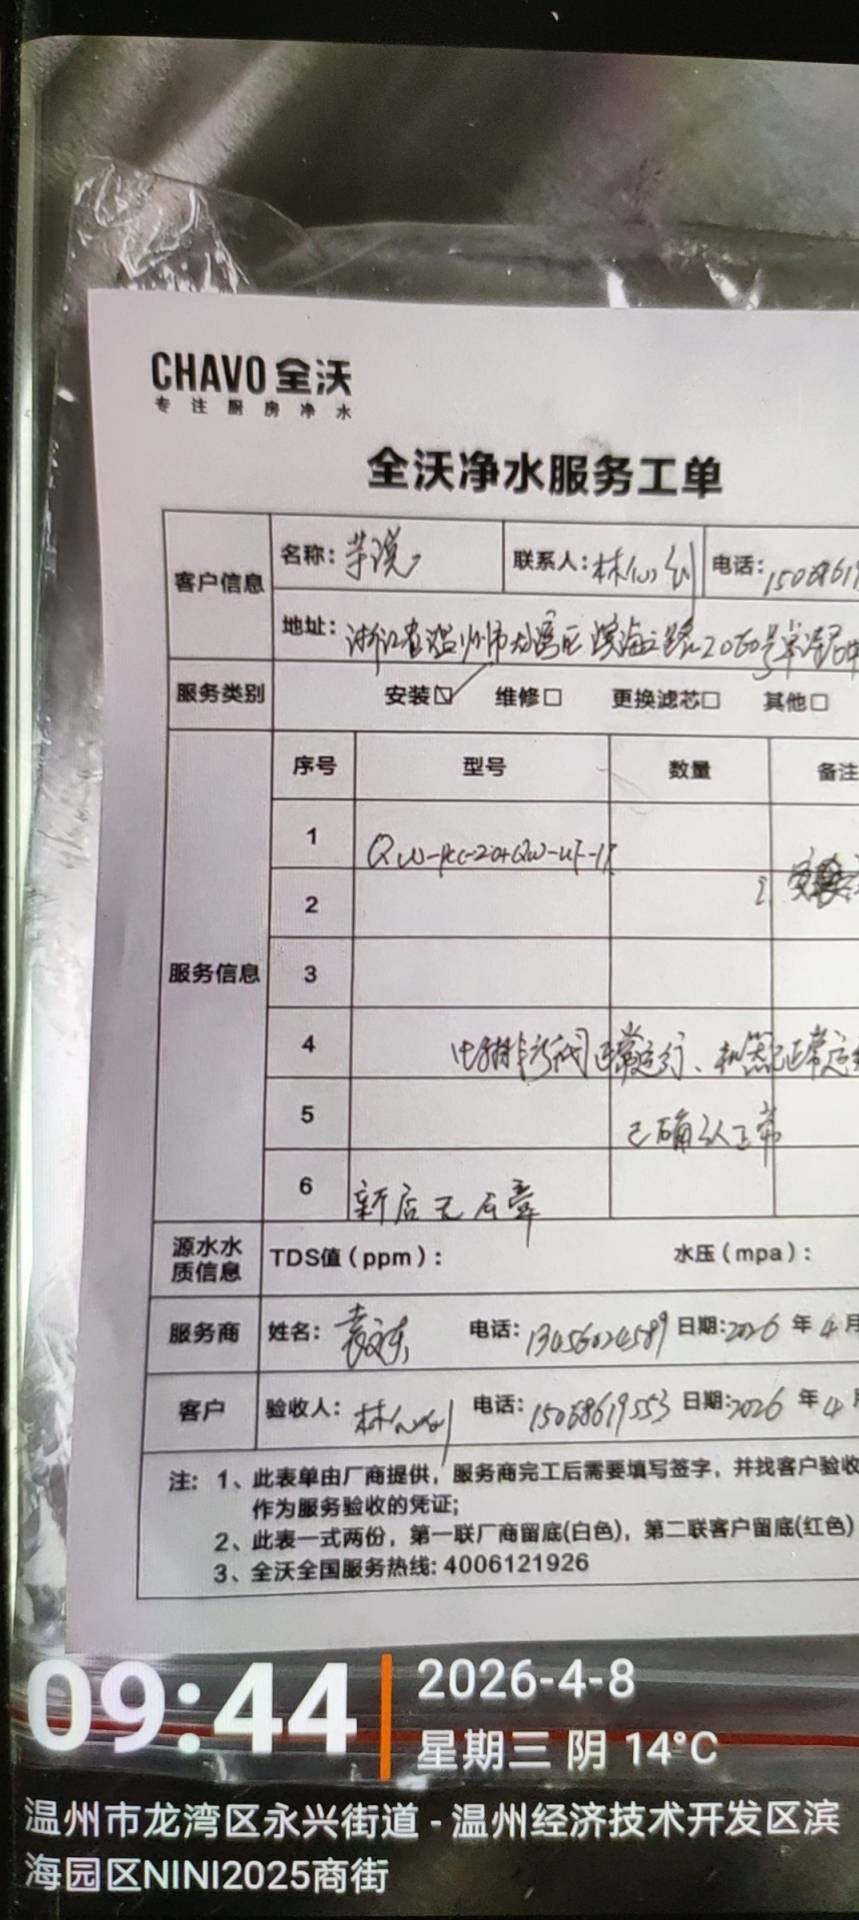 CHAVO 全沃
专注厨房净水
全沃净水服务工单
客户信息 名称: 联系人: 林 电话: 1506861
地址: 浙江省温州市龙湾区滨海二路2060号
服务类别 安装☑ 维修□ 更换滤芯□ 其他□
服务信息 序号 型号 数量 备注
1 QW-
2
3
4 电磁排污阀正常运行、机器已正常运
5 已确认正常
6 新店无后章
源水水质信息 TDS值（ppm）: 水压（mpa）:
服务商 姓名: 袁 电话: 13456024589 日期: 2026 年 4 月
客户 验收人: 林 电话: 15068619553 日期: 2026 年 4
注: 1、此表单由厂商提供，服务商完工后需要填写签字，并找客户验收
作为服务验收的凭证;
2、此表一式两份，第一联厂商留底(白色)，第二联客户留底(红色)
3、全沃全国服务热线: 4006121926
09:44
2026-4-8
星期三 阴 14°C
温州市龙湾区永兴街道 - 温州经济技术开发区滨
海园区NINI2025商街